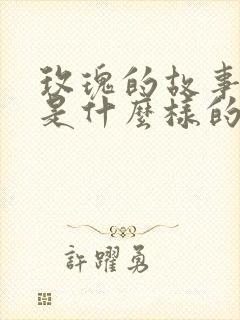 玫瑰的故事
是什麼樣的
許躍勇